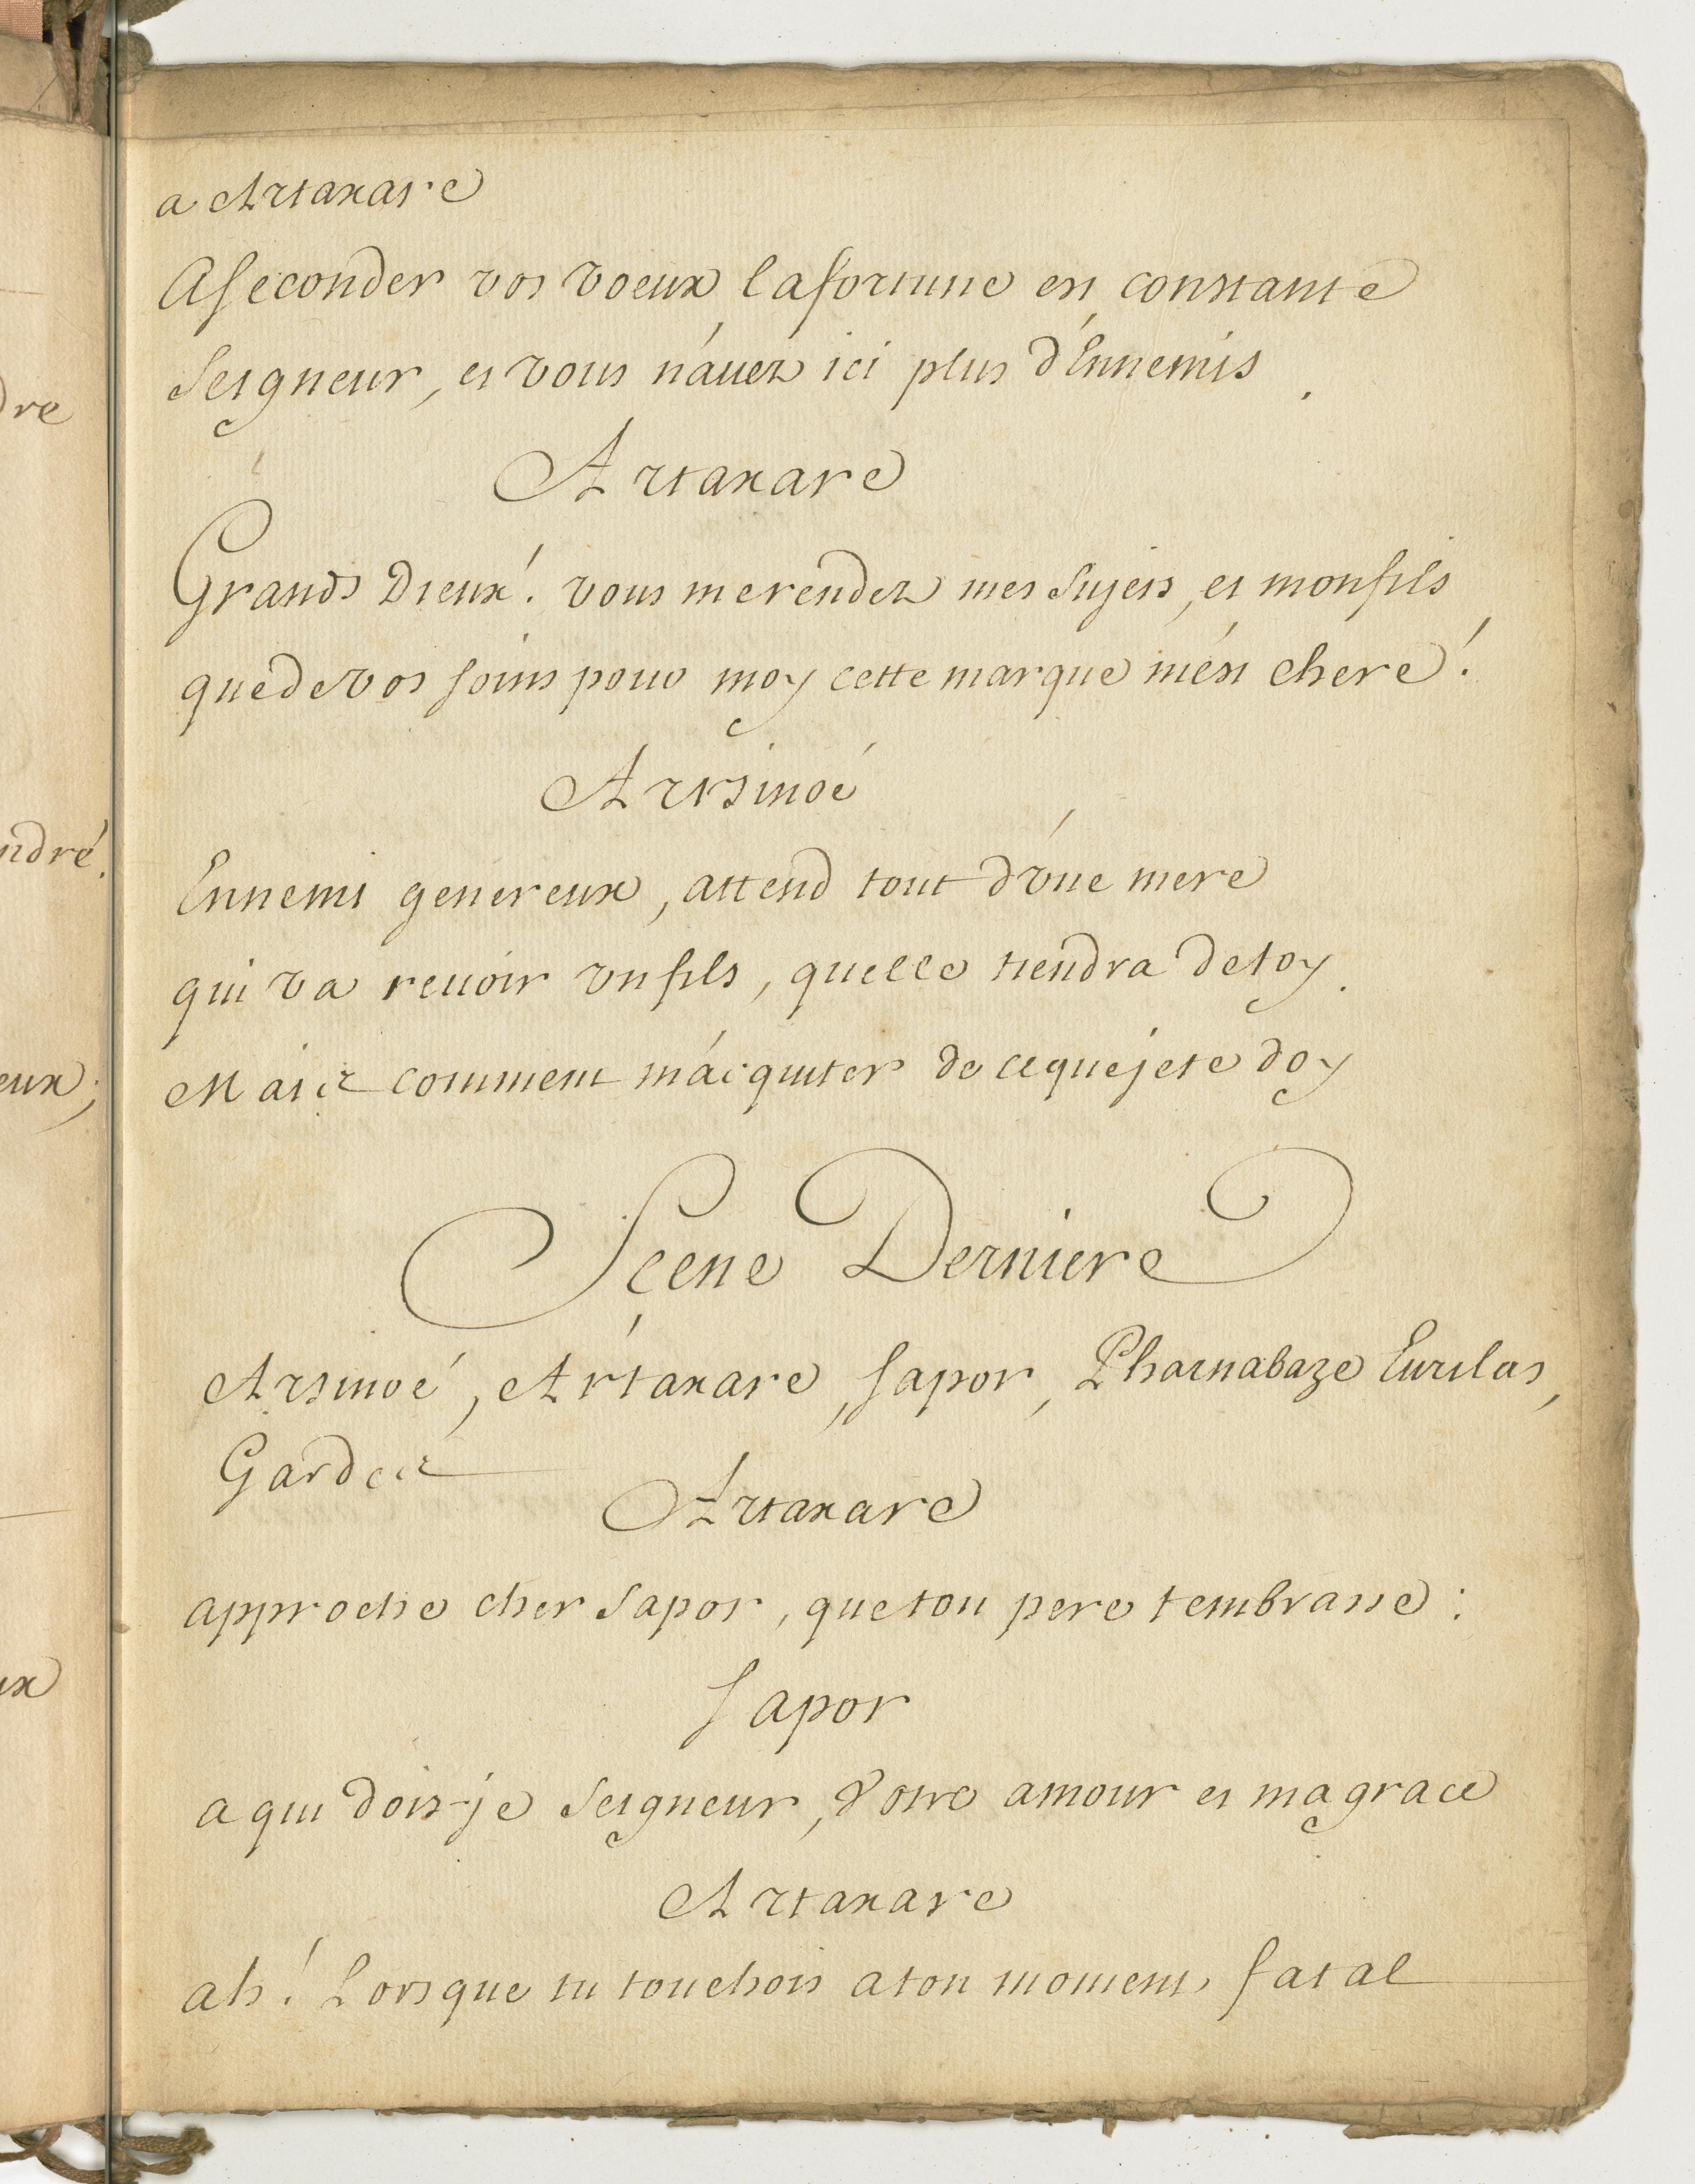 a Artaxare
A seconder vos voeux la fortune est constante
Seigneur, et vous n'auez ici plus d'Ennemis.
Artaxare
Grands Dieux! vous me rendez mes Sujets, et mon fils
que de vos soins pour moy cette marque m'est chere!
Arsinoé
Ennemi genereux, attend tout d'vne mere
qui va reuoir vn fils, quelle tiendra de toy.
Mais comment m'acquiter de ce que je te doy
Scene Derniere
Arsinoé, Artaxare, Sapor, Pharnabaze Eurilas,
Gardes
Artaxare
approche cher Sapor, que ton pere tembrasse:
Sapor
a qui dois-je Seigneur, Votre amour et ma grace
Artaxare
ah! Lorsque tu touchois a ton moment fatal
dre
ndré.
eux;
ux